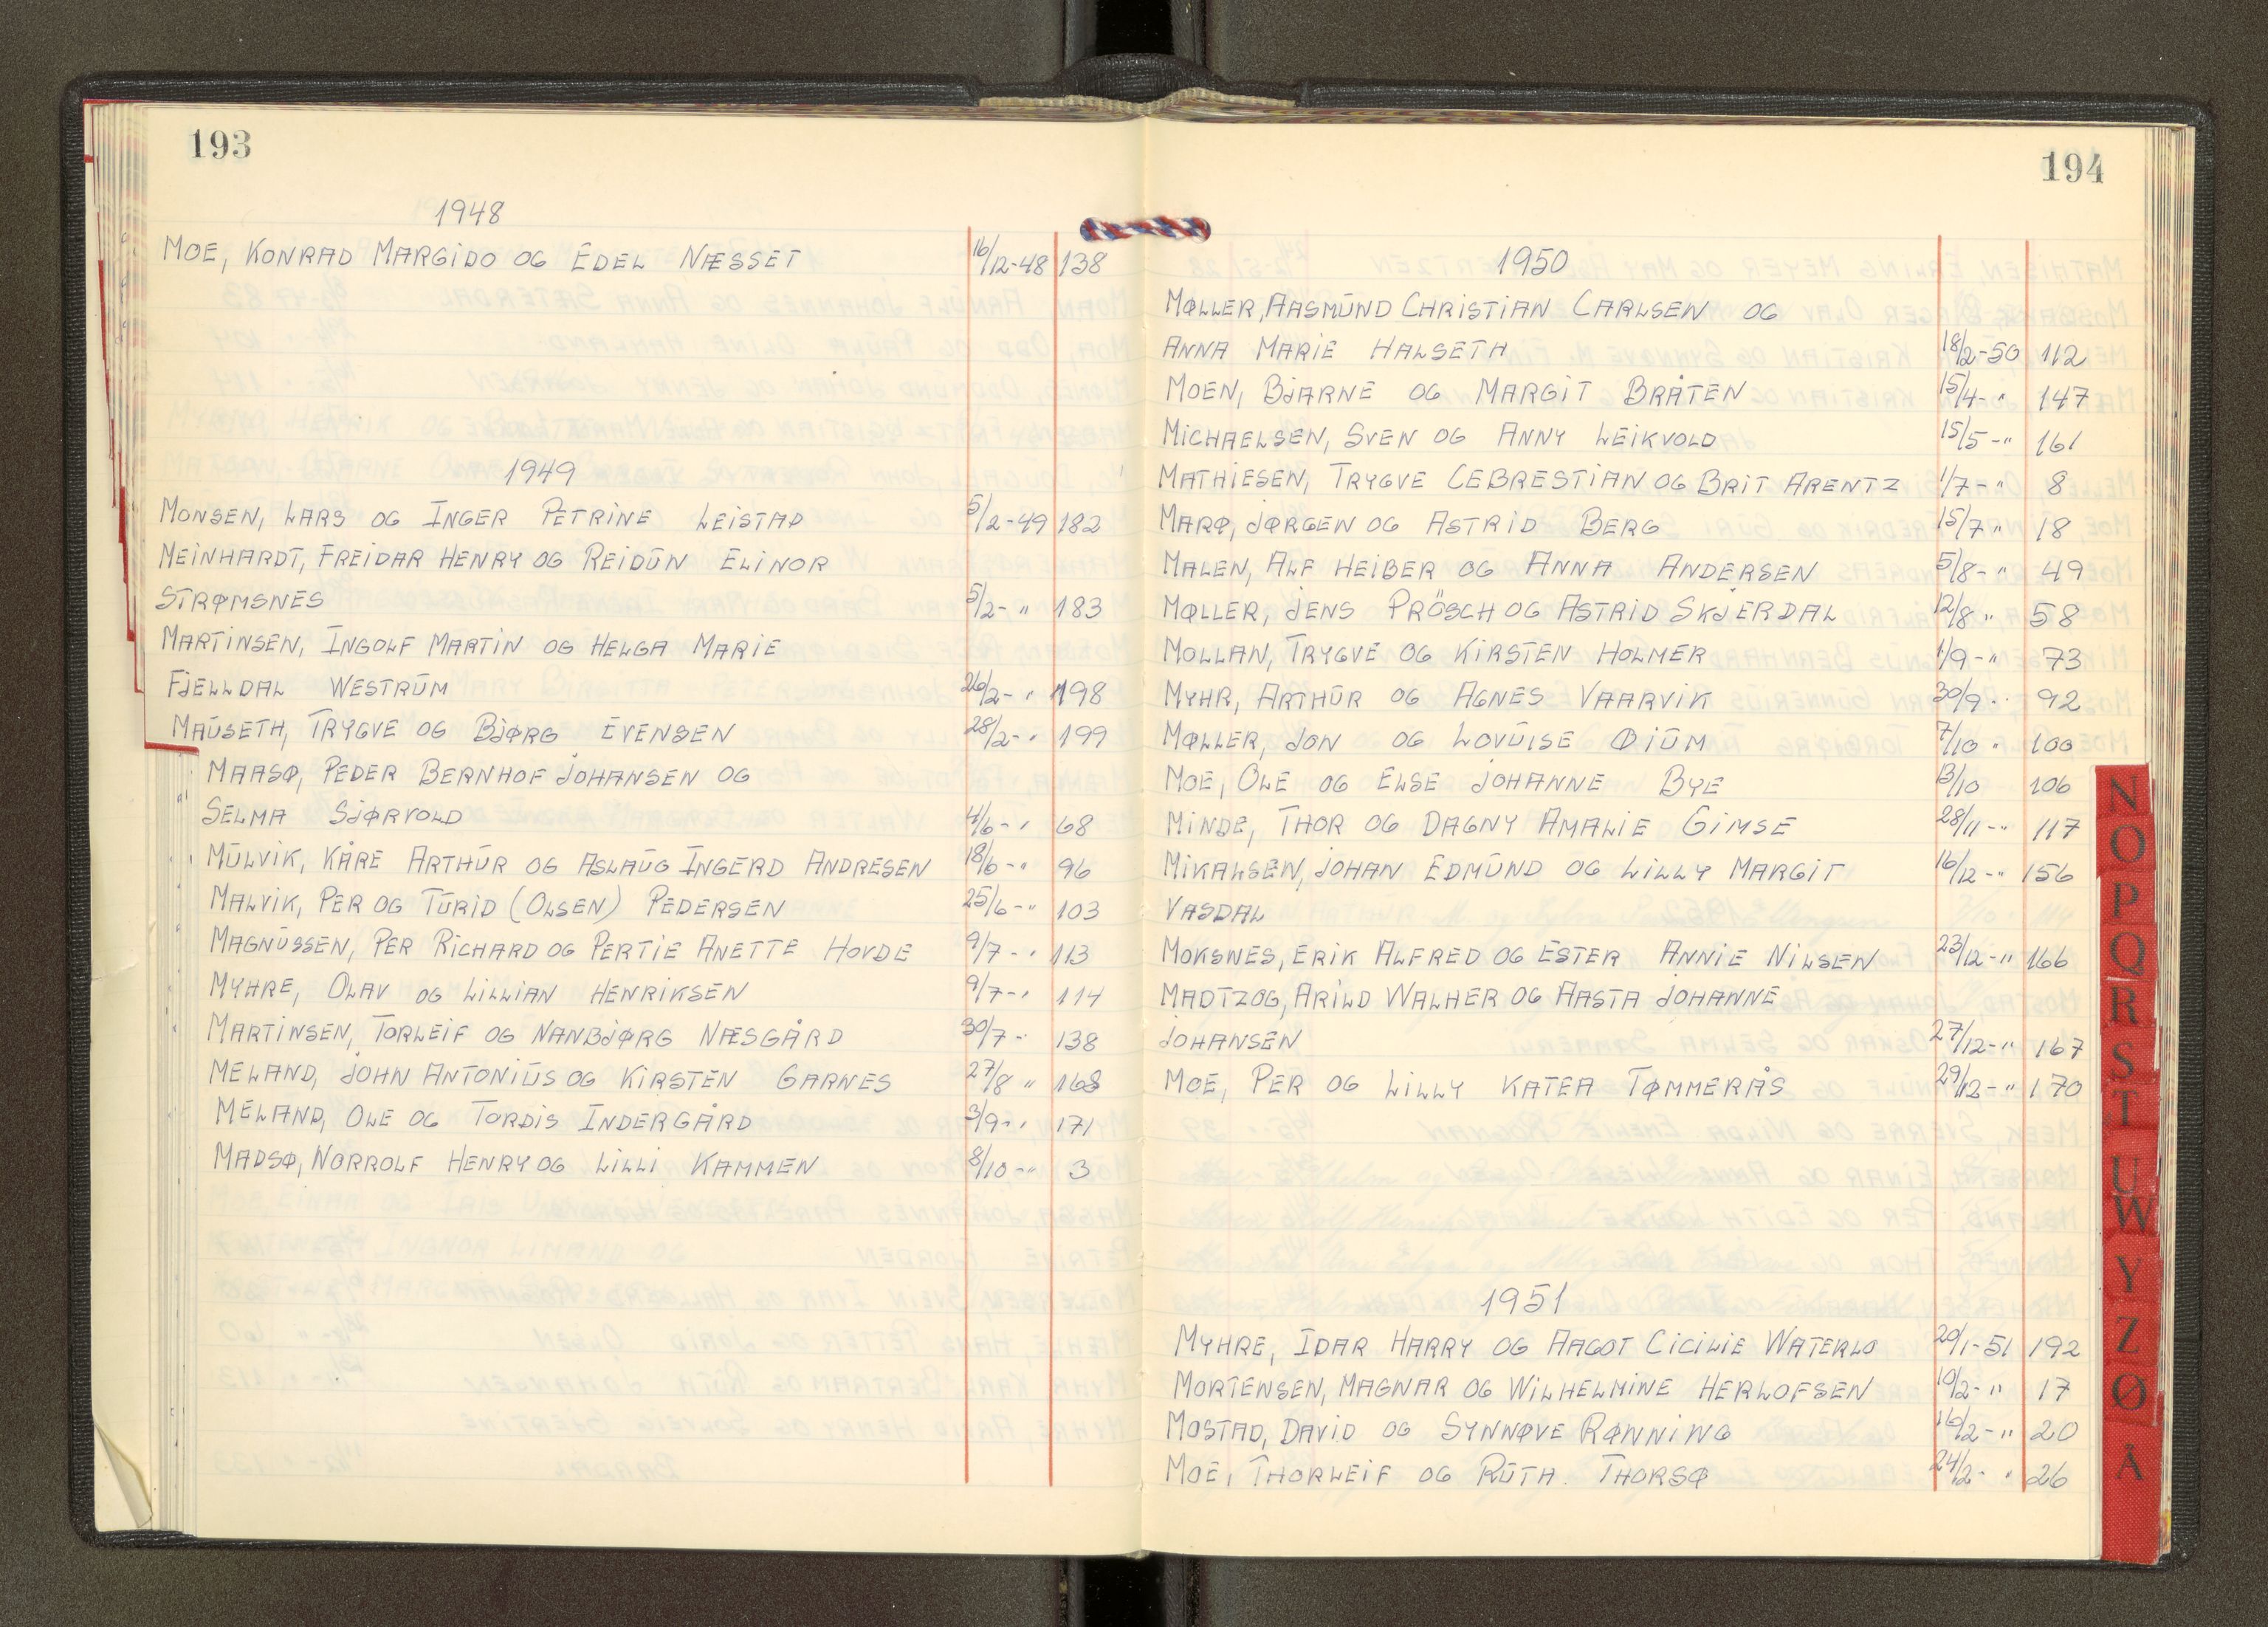 193
1948
MOE, KONRAD MARGIDO OG EDEL NÆSSET 16/12-48 138
1949
MONSEN, LARS OG INGER PETRINE LEISTAD 5/2-49 182
MEINHARDT, FREIDAR HENRY OG REIDŪN ELINOR
STRØMSNES 5/2- " 183
MARTINSEN, INGOLF MARTIN OG HELGA MARIE
FJELLDAL WESTRŪM 26/2- " 198
MAŪSETH, TRYGVE OG BJØRG EVENSEN 28/2- " 199
MAASØ, PEDER BERNHOF JOHANSEN OG
SELMA SJØRVOLD 4/6- " 68
MŪLVIK, KÅRE ARTHŪR OG ASLAŪG INGERD ANDRESEN 18/6- " 96
MALVIK, PER OG TŪRID (OLSEN) PEDERSEN 25/6- " 103
MAGNŪSSEN, PER RICHARD OG PERTIE ANETTE HOVDE 9/7- " 113
MYHRE, OLAV OG LILLIAN HENRIKSEN 9/7- " 114
MARTINSEN, TORLEIF OG NANBJØRG NÆSGÅRD 30/7- 138
MELAND, JOHN ANTONIŪS OG KIRSTEN GARNES 27/8 " 168
MELAND, OLE OG TORDIS INDERGÅRD 3/9- " 171
MADSØ, NORROLF HENRY OG LILLI KAMMEN 8/10- " 3
194
1950
MØLLER, AASMŪND CHRISTIAN CARLSEN OG
ANNA MARIE HALSETH 18/2-50 112
MOEN, BJARNE OG MARGIT BRÅTEN 15/4- " 147
MICHAELSEN, SVEN OG ANNY LEIKVOLD 15/5- " 161
MATHIESEN, TRYGVE CEBRESTIAN OG BRIT ARENTZ 1/7- " 8
MARØ, JØRGEN OG ASTRID BERG 15/7 " 18
MALEN, ALF HEIBER OG ANNA ANDERSEN 5/8- " 49
MØLLER, JENS PRÖSCH OG ASTRID SKJERDAL 12/8 " 58
MOLLAN, TRYGVE OG KIRSTEN HOLMER 1/9- " 73
MYHR, ARTHŪR OG AGNES VAARVIK 30/9 " 92
MØLLER, JON OG LOVŪISE ØIŪM 7/10 " 100
MOE, OLE OG ELSE JOHANNE BYE 13/10 106
MINDE, THOR OG DAGNY AMALIE GIMSE 28/11- " 117
MIKALSEN, JOHAN EDMŪND OG LILLY MARGIT 16/12- " 156
VASDAL
MOKSNES, ERIK ALFRED OG ESTER ANNIE NILSEN 23/12- " 166
MADTZOG, ARILD WALHER OG AASTA JOHANNE
JOHANSEN 27/12- " 167
MOE, PER OG LILLY KATEA TØMMERÅS 29/12- " 170
1951
MYHRE, IDAR HARRY OG AAGOT CICILIE WATERLO 20/1-51 192
MORTENSEN, MAGNAR OG WILHELMINE HERLOFSEN 10/2- " 17
MOSTAD, DAVID OG SYNNØVE RØNNING 16/2- " 20
MOE, THORLEIF OG RŪTH THORSØ 24/2- " 26
N
O
P
Q
R
S
T
U
W
Y
Z
Ø
A